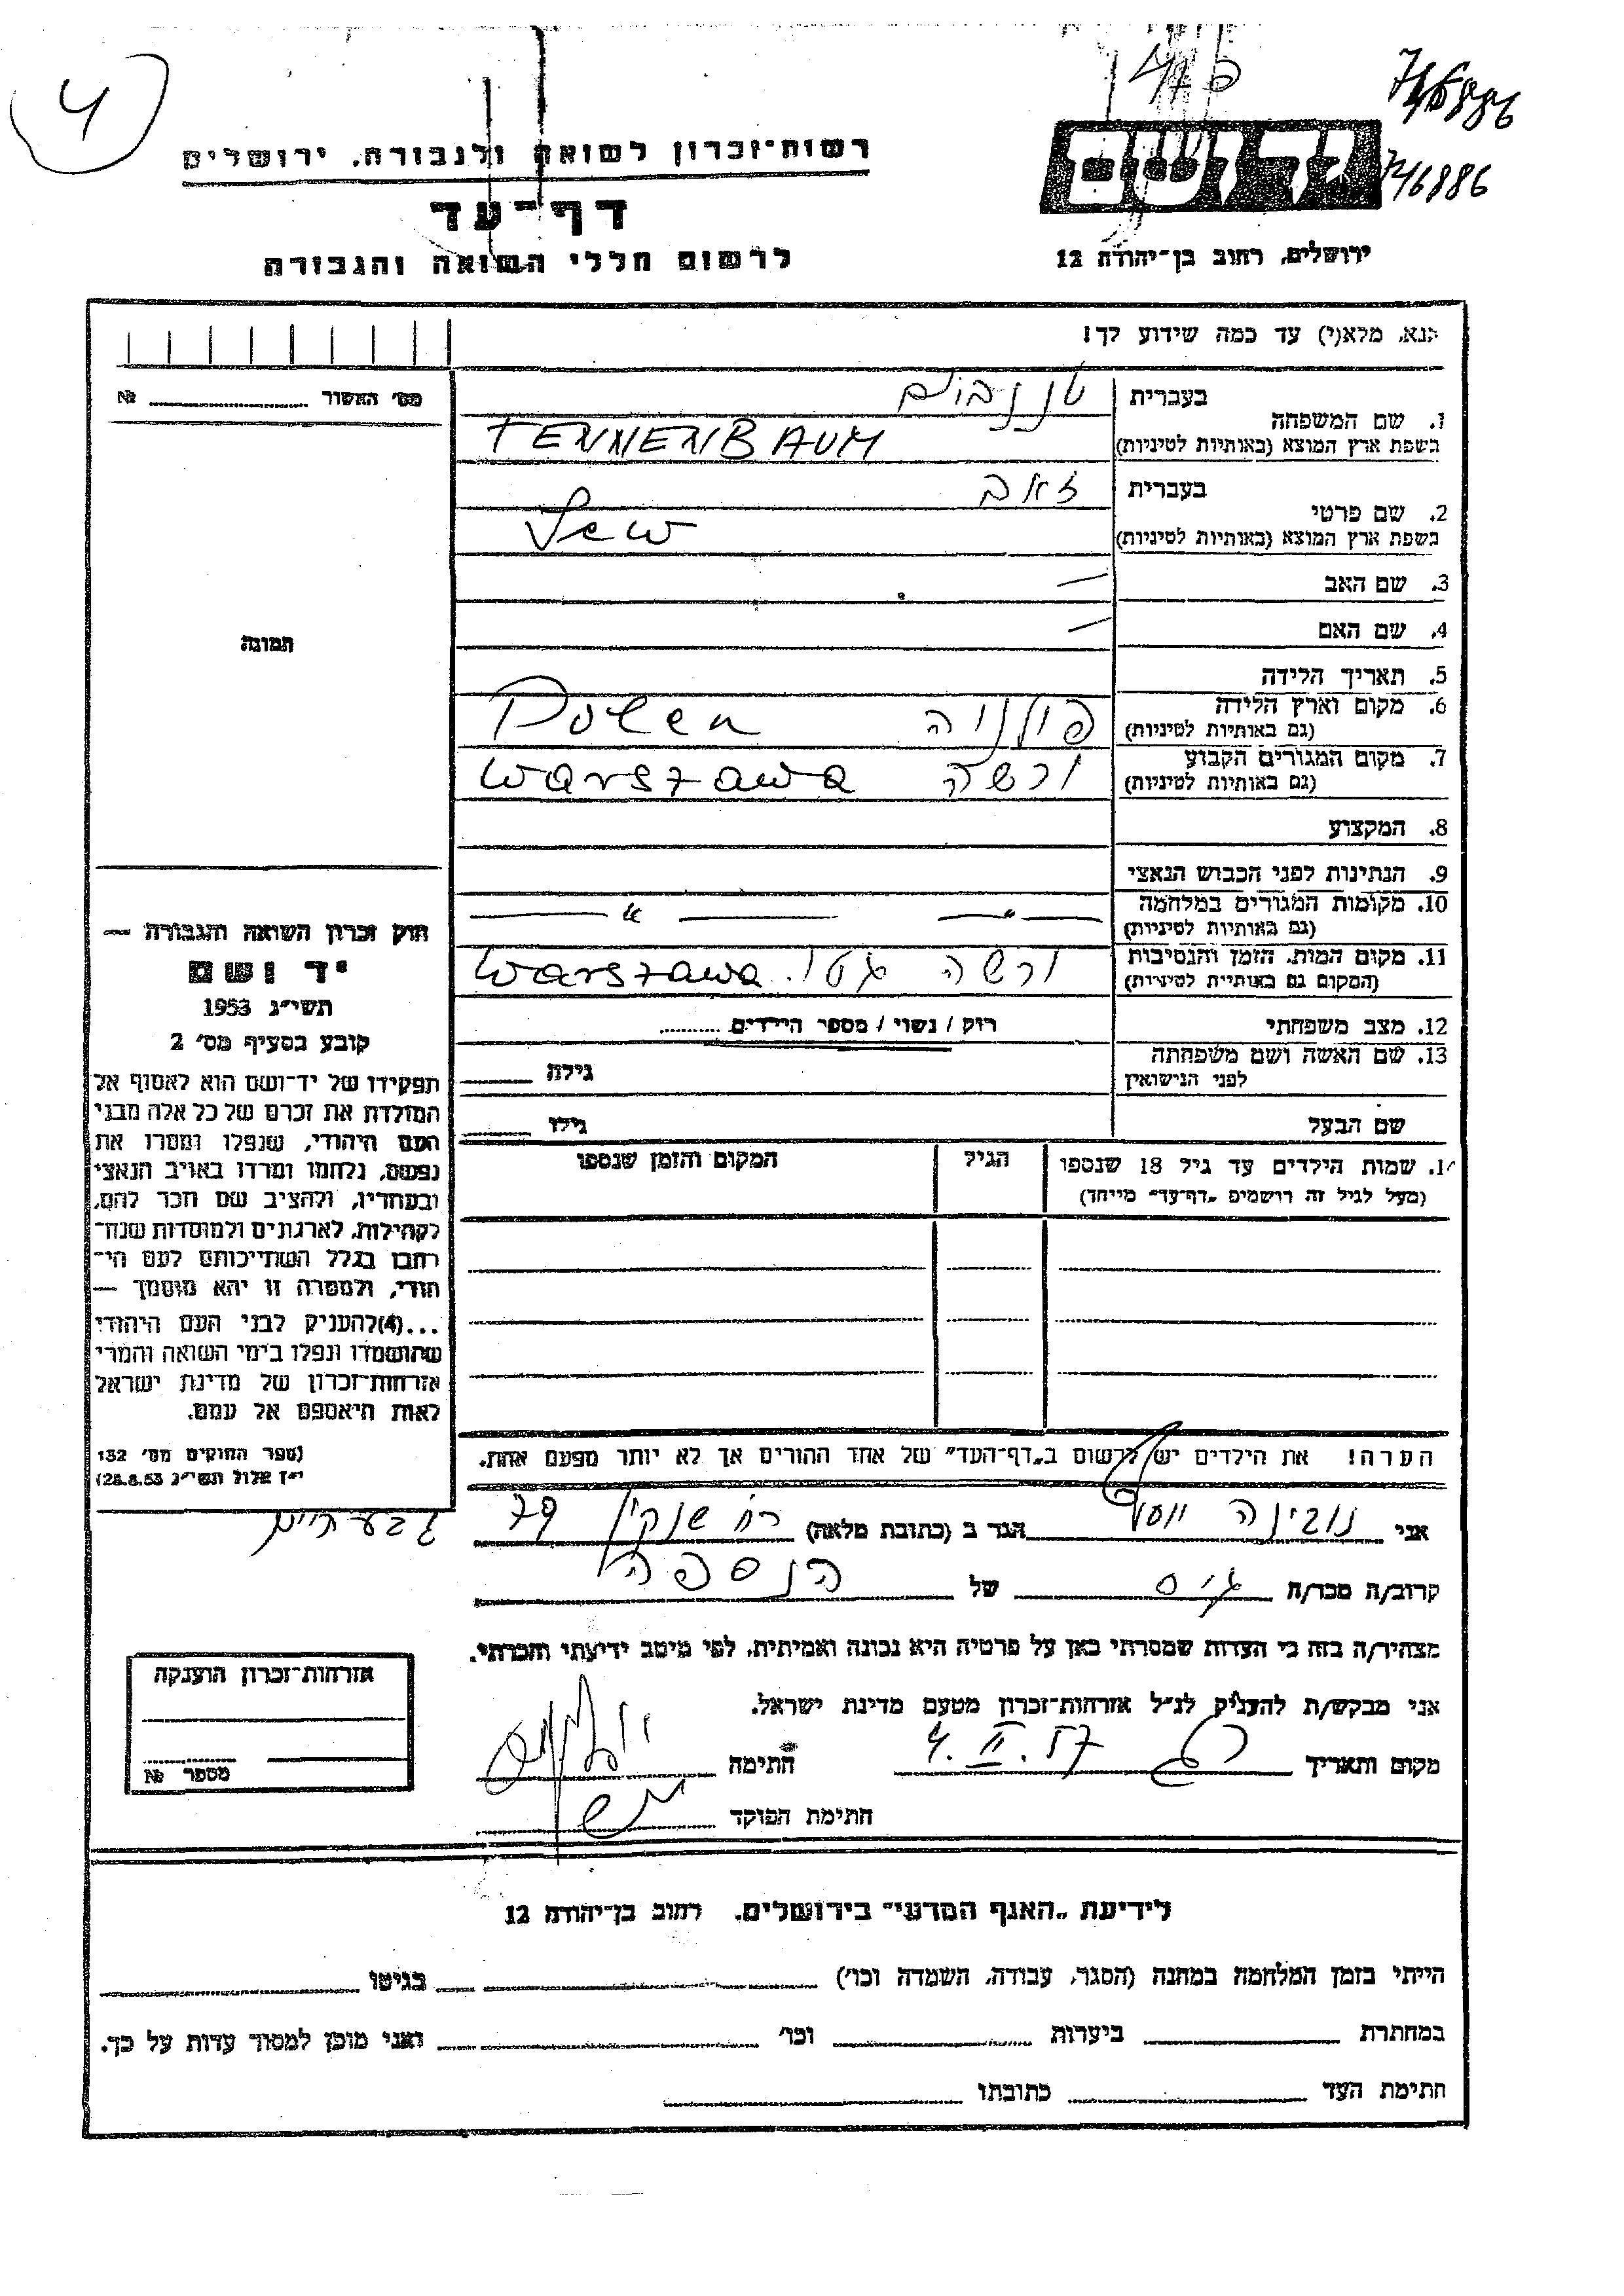 4
415
746886
746886
רשות־זכרון לשואה ולגבורה, ירושלים
דף־עד
לרשום חללי השואה והגבורה
ירושלים, רחוב בן־יהודה 12
נא, מלא(י) עד כמה שידוע לך!
מס׳ האשור № 
1. שם המשפחה בעברית טננבוים
בשפת ארץ המוצא (באותיות לטיניות) TENNENBAUM
2. שם פרטי בעברית זאב
בשפת ארץ המוצא (באותיות לטיניות) Sew
3. שם האב —
4. שם האם —
5. תאריך הלידה
6. מקום וארץ הלידה (גם באותיות לטיניות) פולניה Polen
7. מקום המגורים הקבוע (גם באותיות לטיניות) ורשה Warszawa
8. המקצוע
9. הנתינות לפני הכבוש הנאצי
10. מקומות המגורים במלחמה (גם באותיות לטיניות) — " — — " —
11. מקום המות, הזמן והנסיבות (המקום גם באותיות לטיניות) ורשה גטו. Warszawa
12. מצב משפחתי רוק / נשוי / מספר הילדים
13. שם האשה ושם משפחתה לפני הנישואין גילה
שם הבעל גילו
14. שמות הילדים עד גיל 18 שנספו הגיל המקום והזמן שנספו
(מעל לגיל זה רושמים „דף־עד" מיוחד)
תמונה
חוק זכרון השואה והגבורה —
יד ושם
תשי״ג 1953
קובע בסעיף מס׳ 2
תפקידו של יד־ושם הוא לאסוף אל
המולדת את זכרם של כל אלה מבני
העם היהודי, שנפלו ומסרו את
נפשם, נלחמו ומרדו באויב הנאצי
ובעוזריו, ולהציב שם וזכר להם,
לקהילות, לארגונים ולמוסדות שנח־
רבו בגלל השתייכותם לעם הי־
הודי, ולמטרה זו יהא מוסמך —
...(4)להעניק לבני העם היהודי
שהושמדו ונפלו בימי השואה והמרי
אזרחות־זכרון של מדינת ישראל
לאות היאספם אל עמם.
(ספר החוקים מס׳ 132
י״ז אלול תשי״ג 28.8.53)
הערה! את הילדים יש לרשום ב„דף־העד" של אחד ההורים אך לא יותר מפעם אחת.
אני נובינה יוסף הגר ב (כתובת מלאה) רח׳ שנקין 79 גבעתיים
קרוב/ה מכר/ה גיס של הנספה
מצהיר/ה בזה כי העדות שמסרתי כאן על פרטיה היא נכונה ואמיתית, לפי מיטב ידיעתי והכרתי.
אני מבקש/ת להעניק לנ״ל אזרחות־זכרון מטעם מדינת ישראל.
מקום ותאריך 4. II. 57 חתימה
חתימת הפוקד
אזרחות־זכרון הוענקה
מספר №
לידיעת „האגף המדעי" בירושלים, רחוב בן־יהודה 12
הייתי בזמן המלחמה במחנה (הסגר, עבודה, השמדה וכו׳) בגיטו
במחתרת ביערות וכו׳ ואני מוכן למסור עדות על כך.
חתימת העד כתובתו